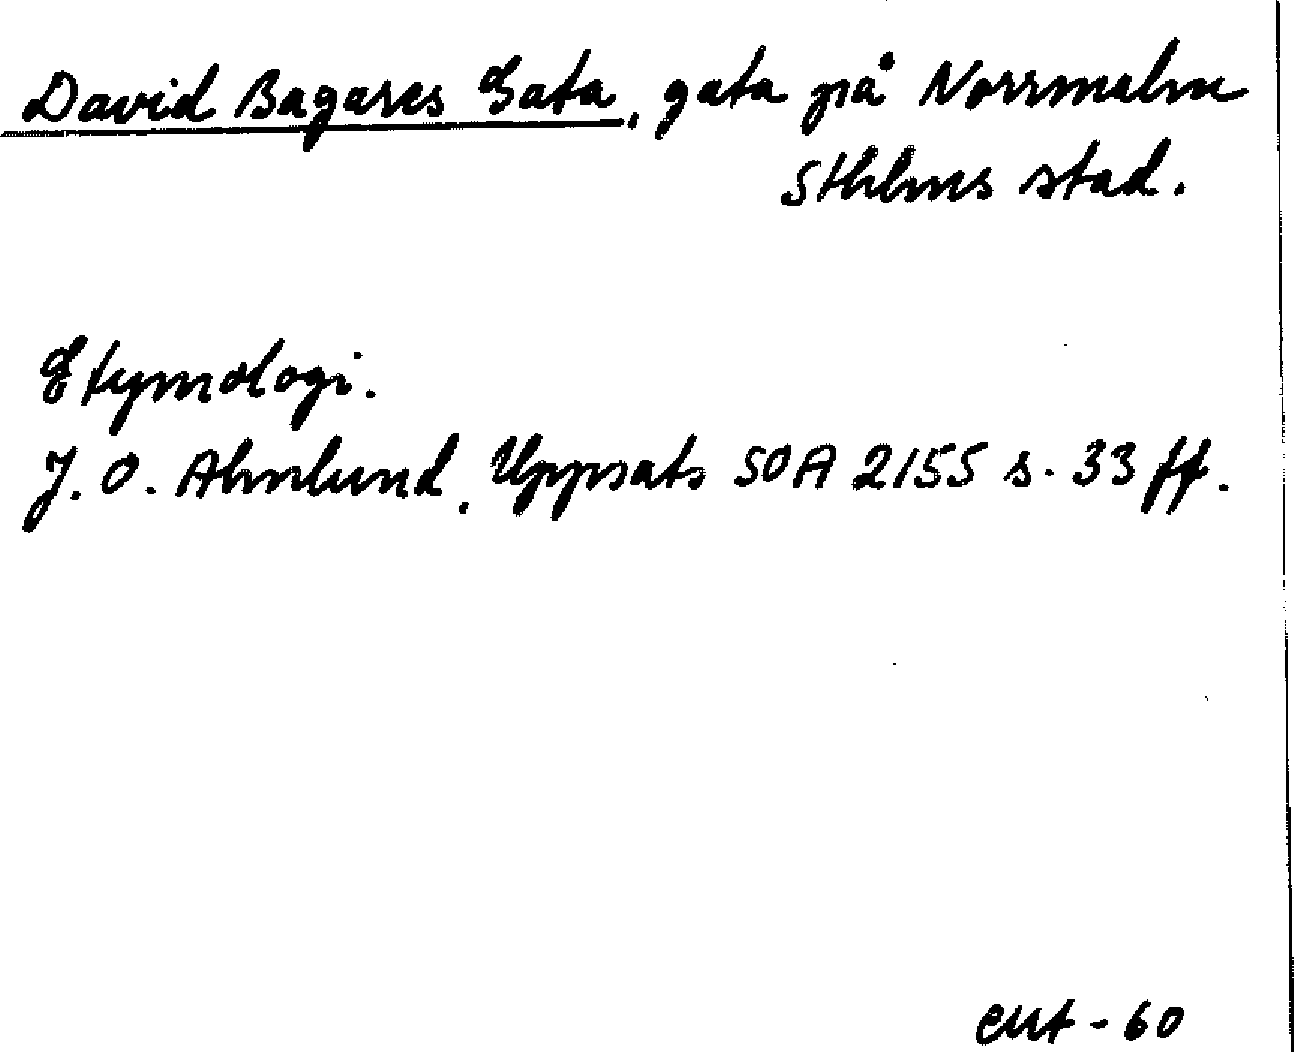 David Bagares Gata, gata på Norrmalm
Sthlms stad.
Etymologi.
J. O. Ahnlund, Uppsats SOA 2155 s. 33 ff.
-60